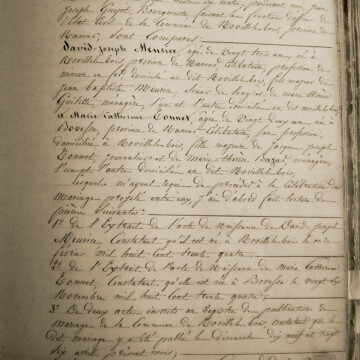 Joseph Guyot, Bourgmestre, faisant les fonctions d'officier de
l'Etat Civil de la Commune de Noville les bois, province de
Namur, Sont Comparus
David Joseph Meurice, agé de Vingt trois ans, né à
Noville les bois, province de Namur, Célibataire, profession de
domicilié en dit Noville les bois, fils majeur de
jean Baptiste Meurice, et de marie
ménagère, l'un et l'autre domiciliés en dit noville les bois
et Marie Catherine Tonnet, agée de Vingt deux ans, née à
Bovesse, province de Namur Célibataire, san profession,
domiciliée à Noville les bois fille majeure de jacques joseph
Tonnet, journalier et de Marie Therese ménagère,
l'un et l'autre domiciliés en dit Noville les bois,
Lesquels m'ayant requis de procéder à la Célébration du
Mariage projeté entre eux, j'ai d'abord fait lecture des
pièces Suivantes:
1° de l'Extrait de l'acte de Naissance de David joseph
Meurice Constatant qu'il est né à Noville les bois le
février mil huit Cent trente quatre.
2° de l'Extrait de l'acte de Naissance de marie Catherine
Tonnet, Constatant qu'elle est née à Bovesse le vingt
Novembre mil huit Cent trente quatre.
3° De deux actes inscrits au registre des publications de
mariage de la Commune de Noville les bois constatant que le
dit mariage y a été publié les dimanches dix neuf et vingt
six avril présent mois;